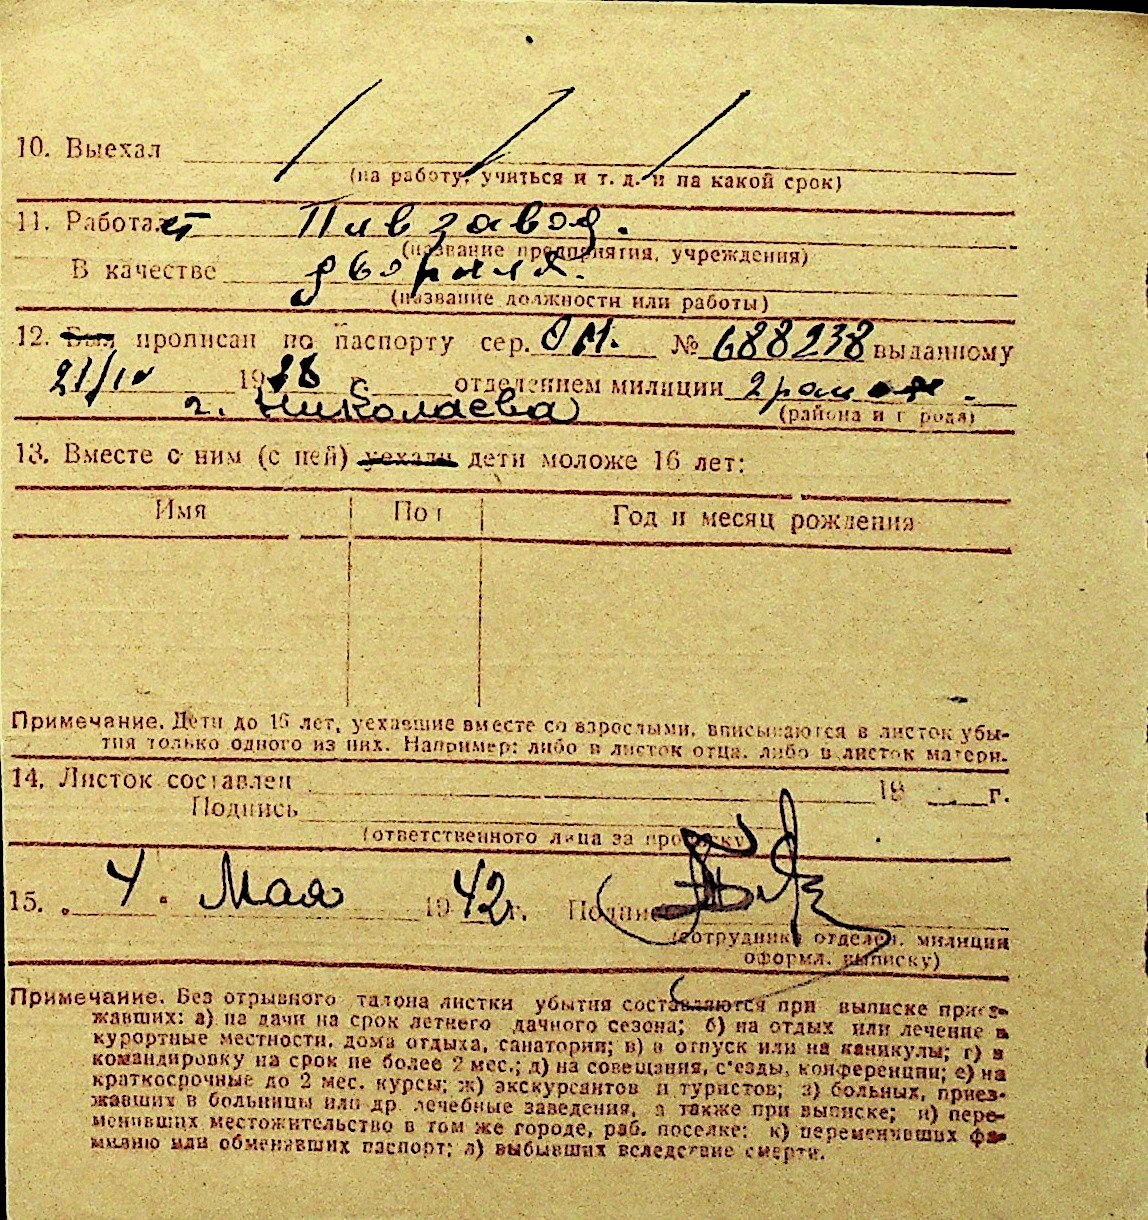 10. Выехал
(на работу, учиться и т. д. и на какой срок)
11. Работает Пивзавод.
(название предприятия, учреждения)
В качестве
(название должности или работы)
12. Был прописан по паспорту сер. № 688238 выданному
21/IV 19 г. отделением милиции
г. Николаева (района и города)
13. Вместе с ним (с ней) уехали дети моложе 16 лет:
Имя Пол Год и месяц рождения
Примечание. Дети до 16 лет, уехавшие вместе со взрослыми, вписываются в листок убы-
тия только одного из них. Например: либо в листок отца, либо в листок матери.
14. Листок составлен 19 г.
Подпись
(ответственного лица за прописку)
15. 4. Мая 1942 г. Подпись
(сотрудника отделен. милиции
оформл. выписку)
Примечание. Без отрывного талона листки убытия составляются при выписке приез-
жавших: а) на дачи на срок летнего дачного сезона; б) на отдых или лечение в
курортные местности, дома отдыха, санатории; в) в отпуск или на каникулы; г) в
командировку на срок не более 2 мес.; д) на совещания, с'езды, конференции; е) на
краткосрочные до 2 мес. курсы; ж) экскурсантов и туристов; з) больных, приез-
жавших в больницы или др. лечебные заведения, а также при выписке; и) пере-
менивших местожительство в том же городе, раб. поселке; к) переменивших фа-
милию или обменявших паспорт; л) выбывших вследствие смерти.